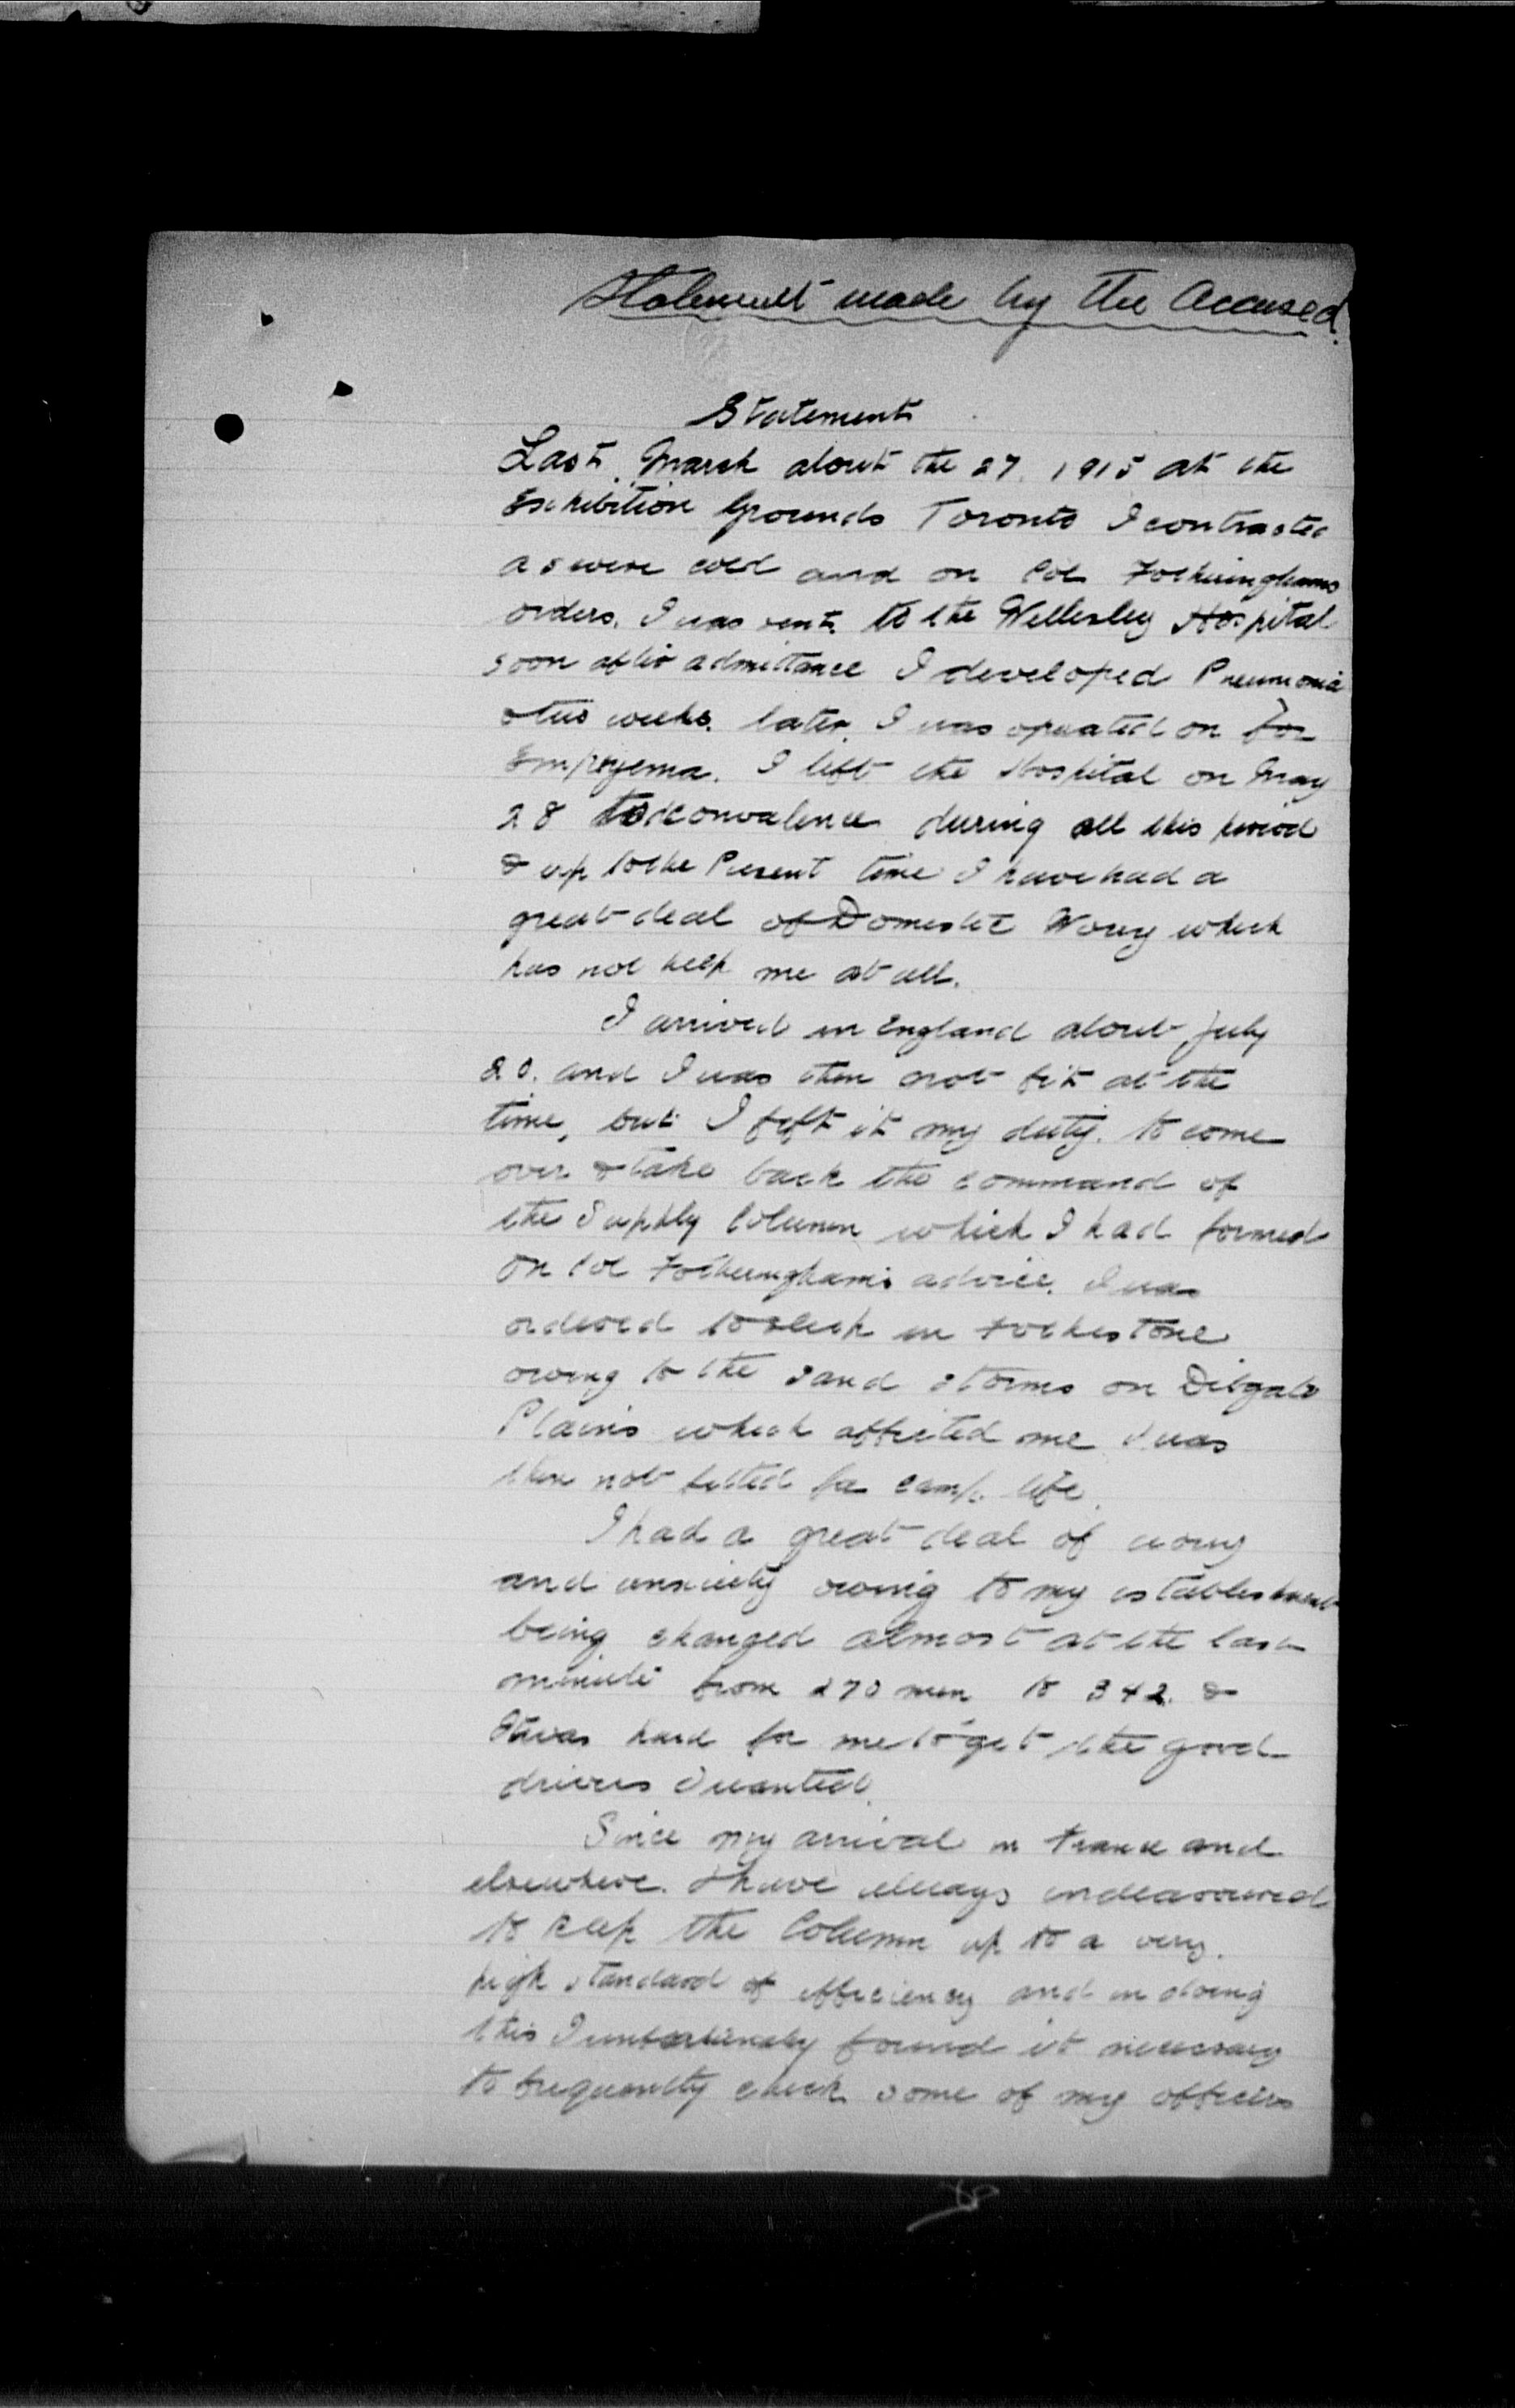 Statement made by the Accused.
Statement
Last March about the 27. 1915 at the
Exhibition Grounds Toronto I contracted
a severe cold and on Col Fotheringhams
orders. I was sent to the Wellesley Hospital
soon after admittance I developed Pneumonia
& two weeks. later. I was operated on for
Empyema. I left the Hospital on May
28 to convalence during all this period
& up to the Present time I have had a
great deal of Domestic Worry which
has not help me at all.
I arrived in England about July
20. and I was then not fit at the
time, but I felt it my duty. to come
over & take back the command of
the Supply Column which I had formed
on Col Fotheringham's advice. I was
ordered to sleep in Folkestone
owing to the sand storms on Dibgate
Plains which affected me I was
then not fitted for camp. life.
I had a great deal of worry
and anxiety owing to my establishment
being changed almost at the last
minute from 270 men to 342. &
It was hard for me to get the good
drivers I wanted.
Since my arrival in France and
elsewhere. I have always endeavoured
to keep the Column up to a very.
high standard of efficiency and in doing
this I unfortunately found it necessary
to frequently check some of my officers